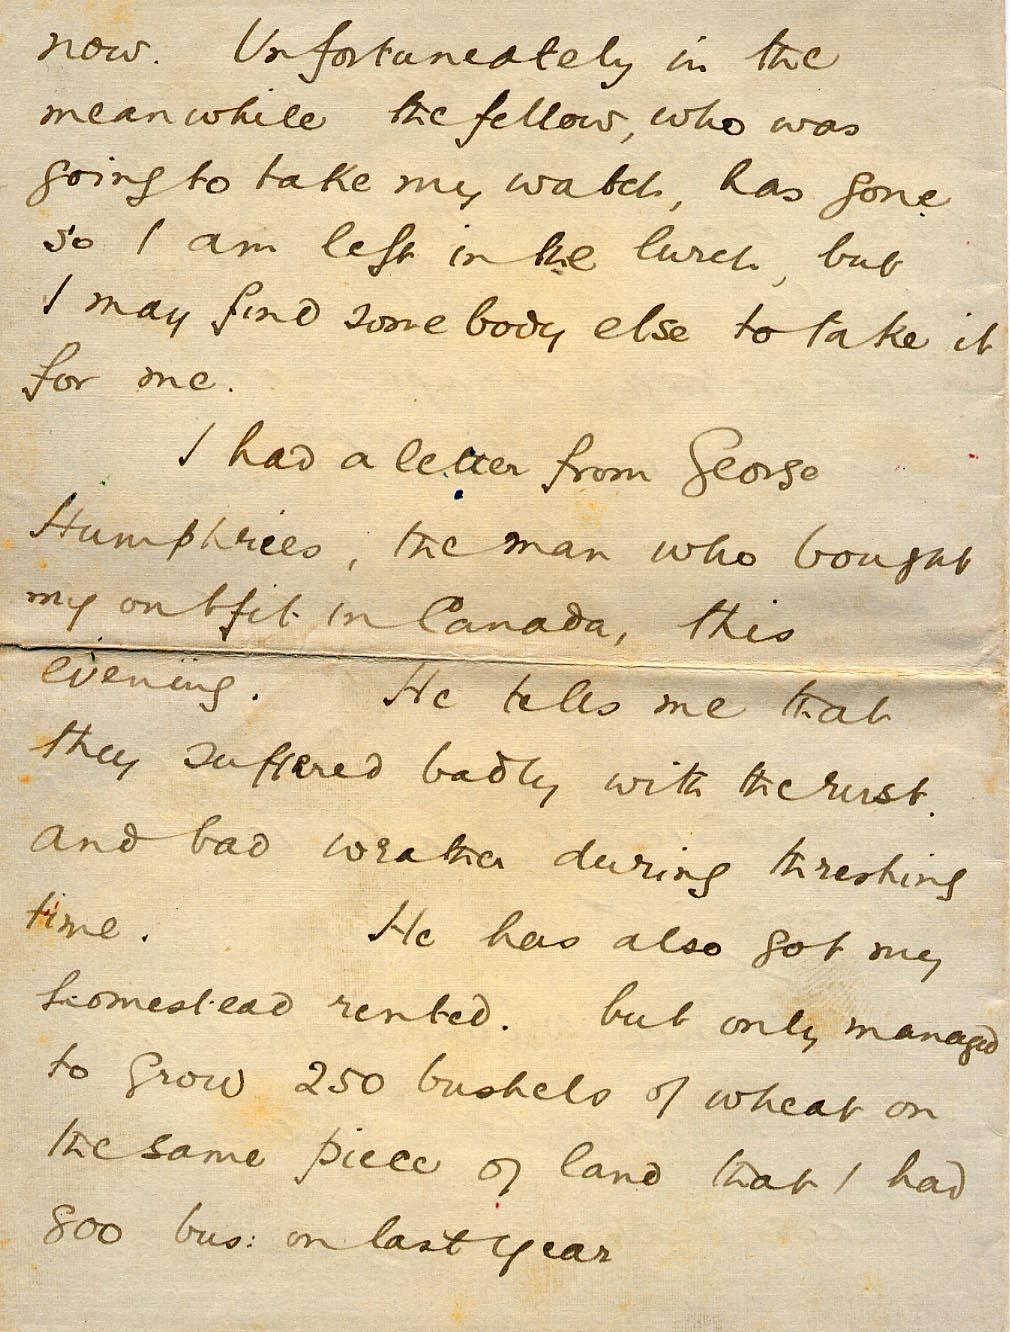 now. Unfortuneately in the
meanwhile the fellow, who was
going to take my watch, has gone
so I am left in the lurch, but
I may find somebody else to take it
for me.
I had a letter from George
Humphries, the man who bought
my outfit in Canada, this
evening. He tells me that
they suffered badly with the rust.
and bad weather during threshing
time. He has also got my
homestead rented. but only managed
to grow 250 bushels of wheat on
the same piece of land that I had
800 bus: on last year